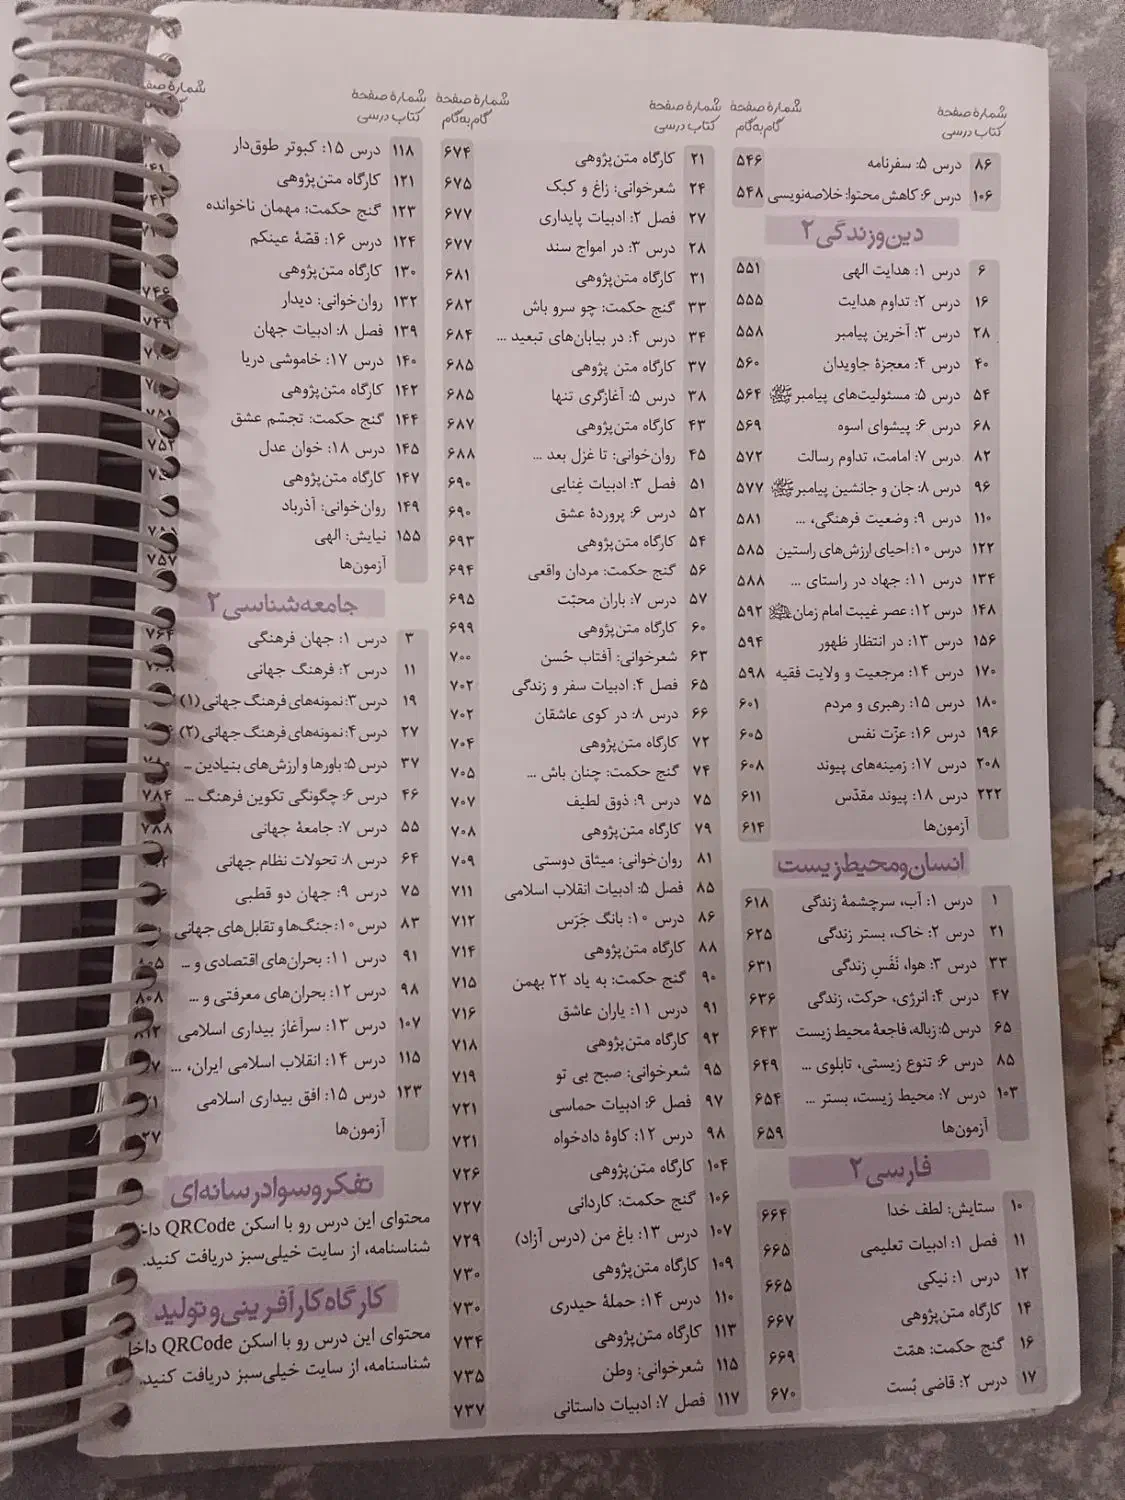 شمارهٔ صفحهٔ کتاب درسی
شمارهٔ صفحهٔ گام‌به‌گام
۸۶ درس ۵: سفرنامه ۵۴۶
۱۰۶ درس ۶: کاهش محتوا: خلاصه‌نویسی ۵۴۸
دین‌وزندگی ۲
۶ درس ۱: هدایت الهی ۵۵۱
۱۶ درس ۲: تداوم هدایت ۵۵۵
۲۸ درس ۳: آخرین پیامبر ۵۵۸
۴۰ درس ۴: معجزهٔ جاویدان ۵۶۰
۵۴ درس ۵: مسئولیت‌های پیامبر ﷺ ۵۶۴
۶۸ درس ۶: پیشوای اسوه ۵۶۹
۸۲ درس ۷: امامت، تداوم رسالت ۵۷۲
۹۶ درس ۸: جان و جانشین پیامبر ﷺ ۵۷۷
۱۱۰ درس ۹: وضعیت فرهنگی، ... ۵۸۱
۱۲۲ درس ۱۰: احیای ارزش‌های راستین ۵۸۵
۱۳۴ درس ۱۱: جهاد در راستای ... ۵۸۸
۱۴۸ درس ۱۲: عصر غیبت امام زمان ۵۹۲
۱۵۶ درس ۱۳: در انتظار ظهور ۵۹۴
۱۷۰ درس ۱۴: مرجعیت و ولایت فقیه ۵۹۸
۱۸۰ درس ۱۵: رهبری و مردم ۶۰۱
۱۹۶ درس ۱۶: عزّت نفس ۶۰۵
۲۰۸ درس ۱۷: زمینه‌های پیوند ۶۰۸
۲۲۲ درس ۱۸: پیوند مقدّس ۶۱۱
آزمون‌ها ۶۱۴
انسان‌ومحیط‌زیست
۱ درس ۱: آب، سرچشمهٔ زندگی ۶۱۸
۲۱ درس ۲: خاک، بستر زندگی ۶۲۵
۳۳ درس ۳: هوا، نَفَسِ زندگی ۶۳۱
۴۷ درس ۴: انرژی، حرکت، زندگی ۶۳۶
۶۵ درس ۵: زباله، فاجعهٔ محیط زیست ۶۴۳
۸۵ درس ۶: تنوع زیستی، تابلوی ... ۶۴۹
۱۰۳ درس ۷: محیط زیست، بستر ... ۶۵۴
آزمون‌ها ۶۵۹
فارسی ۲
۱۰ ستایش: لطف خدا ۶۶۴
۱۱ فصل ۱: ادبیات تعلیمی ۶۶۵
۱۲ درس ۱: نیکی ۶۶۵
۱۴ کارگاه متن‌پژوهی ۶۶۷
۱۶ گنج حکمت: همّت ۶۶۹
۱۷ درس ۲: قاضی بُست ۶۷۰
شمارهٔ صفحهٔ کتاب درسی
شمارهٔ صفحهٔ گام‌به‌گام
۲۱ کارگاه متن‌پژوهی ۶۷۴
۲۴ شعرخوانی: زاغ و کبک ۶۷۵
۲۷ فصل ۲: ادبیات پایداری ۶۷۷
۲۸ درس ۳: در امواج سند ۶۷۷
۳۱ کارگاه متن‌پژوهی ۶۸۱
۳۳ گنج حکمت: چو سرو باش ۶۸۲
۳۴ درس ۴: در بیابان‌های تبعید ... ۶۸۴
۳۷ کارگاه متن پژوهی ۶۸۵
۳۸ درس ۵: آغازگری تنها ۶۸۵
۴۳ کارگاه متن‌پژوهی ۶۸۷
۴۵ روان‌خوانی: تا غزل بعد ... ۶۸۸
۵۱ فصل ۳: ادبیات غِنایی ۶۹۰
۵۲ درس ۶: پروردهٔ عشق ۶۹۰
۵۴ کارگاه متن‌پژوهی ۶۹۳
۵۶ گنج حکمت: مردان واقعی ۶۹۴
۵۷ درس ۷: باران محبّت ۶۹۵
۶۰ کارگاه متن‌پژوهی ۶۹۹
۶۳ شعرخوانی: آفتاب حُسن ۷۰۰
۶۵ فصل ۴: ادبیات سفر و زندگی ۷۰۲
۶۶ درس ۸: در کوی عاشقان ۷۰۲
۷۲ کارگاه متن‌پژوهی ۷۰۴
۷۴ گنج حکمت: چنان باش ... ۷۰۵
۷۵ درس ۹: ذوق لطیف ۷۰۷
۷۹ کارگاه متن‌پژوهی ۷۰۸
۸۱ روان‌خوانی: میثاق دوستی ۷۰۹
۸۵ فصل ۵: ادبیات انقلاب اسلامی ۷۱۱
۸۶ درس ۱۰: بانگ جَرَس ۷۱۲
۸۸ کارگاه متن‌پژوهی ۷۱۴
۹۰ گنج حکمت: به یاد ۲۲ بهمن ۷۱۵
۹۱ درس ۱۱: یاران عاشق ۷۱۶
۹۲ کارگاه متن‌پژوهی ۷۱۸
۹۵ شعرخوانی: صبح بی تو ۷۱۹
۹۷ فصل ۶: ادبیات حماسی ۷۲۱
۹۸ درس ۱۲: کاوهٔ دادخواه ۷۲۱
۱۰۴ کارگاه متن‌پژوهی ۷۲۶
۱۰۶ گنج حکمت: کاردانی ۷۲۷
۱۰۷ درس ۱۳: باغ من (درس آزاد) ۷۲۹
۱۰۹ کارگاه متن‌پژوهی ۷۳۰
۱۱۰ درس ۱۴: حملهٔ حیدری ۷۳۰
۱۱۳ کارگاه متن‌پژوهی ۷۳۴
۱۱۵ شعرخوانی: وطن ۷۳۵
۱۱۷ فصل ۷: ادبیات داستانی ۷۳۷
شمارهٔ صفحهٔ کتاب درسی
شمارهٔ
۱۱۸ درس ۱۵: کبوتر طوق‌دار
۱۲۱ کارگاه متن‌پژوهی
۱۲۳ گنج حکمت: مهمان ناخوانده
۱۲۴ درس ۱۶: قصّهٔ عینکم
۱۳۰ کارگاه متن‌پژوهی
۱۳۲ روان‌خوانی: دیدار
۱۳۹ فصل ۸: ادبیات جهان
۱۴۰ درس ۱۷: خاموشی دریا
۱۴۲ کارگاه متن‌پژوهی
۱۴۴ گنج حکمت: تجسّم عشق
۱۴۵ درس ۱۸: خوان عدل ۷۵۲
۱۴۷ کارگاه متن‌پژوهی
۱۴۹ روان‌خوانی: آذرباد
۱۵۵ نیایش: الهی
آزمون‌ها ۷۵۷
جامعه‌شناسی ۲
۳ درس ۱: جهان فرهنگی ۷۶۴
۱۱ درس ۲: فرهنگ جهانی
۱۹ درس ۳: نمونه‌های فرهنگ جهانی (۱)
۲۷ درس ۴: نمونه‌های فرهنگ جهانی (۲)
۳۷ درس ۵: باورها و ارزش‌های بنیادین ... ۷۸۰
۴۶ درس ۶: چگونگی تکوین فرهنگ ... ۷۸۴
۵۵ درس ۷: جامعهٔ جهانی ۷۸۸
۶۴ درس ۸: تحولات نظام جهانی
۷۵ درس ۹: جهان دو قطبی
۸۳ درس ۱۰: جنگ‌ها و تقابل‌های جهانی
۹۱ درس ۱۱: بحران‌های اقتصادی و ... ۸۰۵
۹۸ درس ۱۲: بحران‌های معرفتی و ... ۸۰۸
۱۰۷ درس ۱۳: سرآغاز بیداری اسلامی ۸۱۲
۱۱۵ درس ۱۴: انقلاب اسلامی ایران، ...
۱۲۳ درس ۱۵: افق بیداری اسلامی
آزمون‌ها
تفکر‌وسوادرسانه‌ای
محتوای این درس رو با اسکن QRCode
شناسنامه، از سایت خیلی‌سبز دریافت کنید.
کارگاه‌کارآفرینی‌وتولید
محتوای این درس رو با اسکن QRCode
شناسنامه، از سایت خیلی‌سبز دریافت کنید.